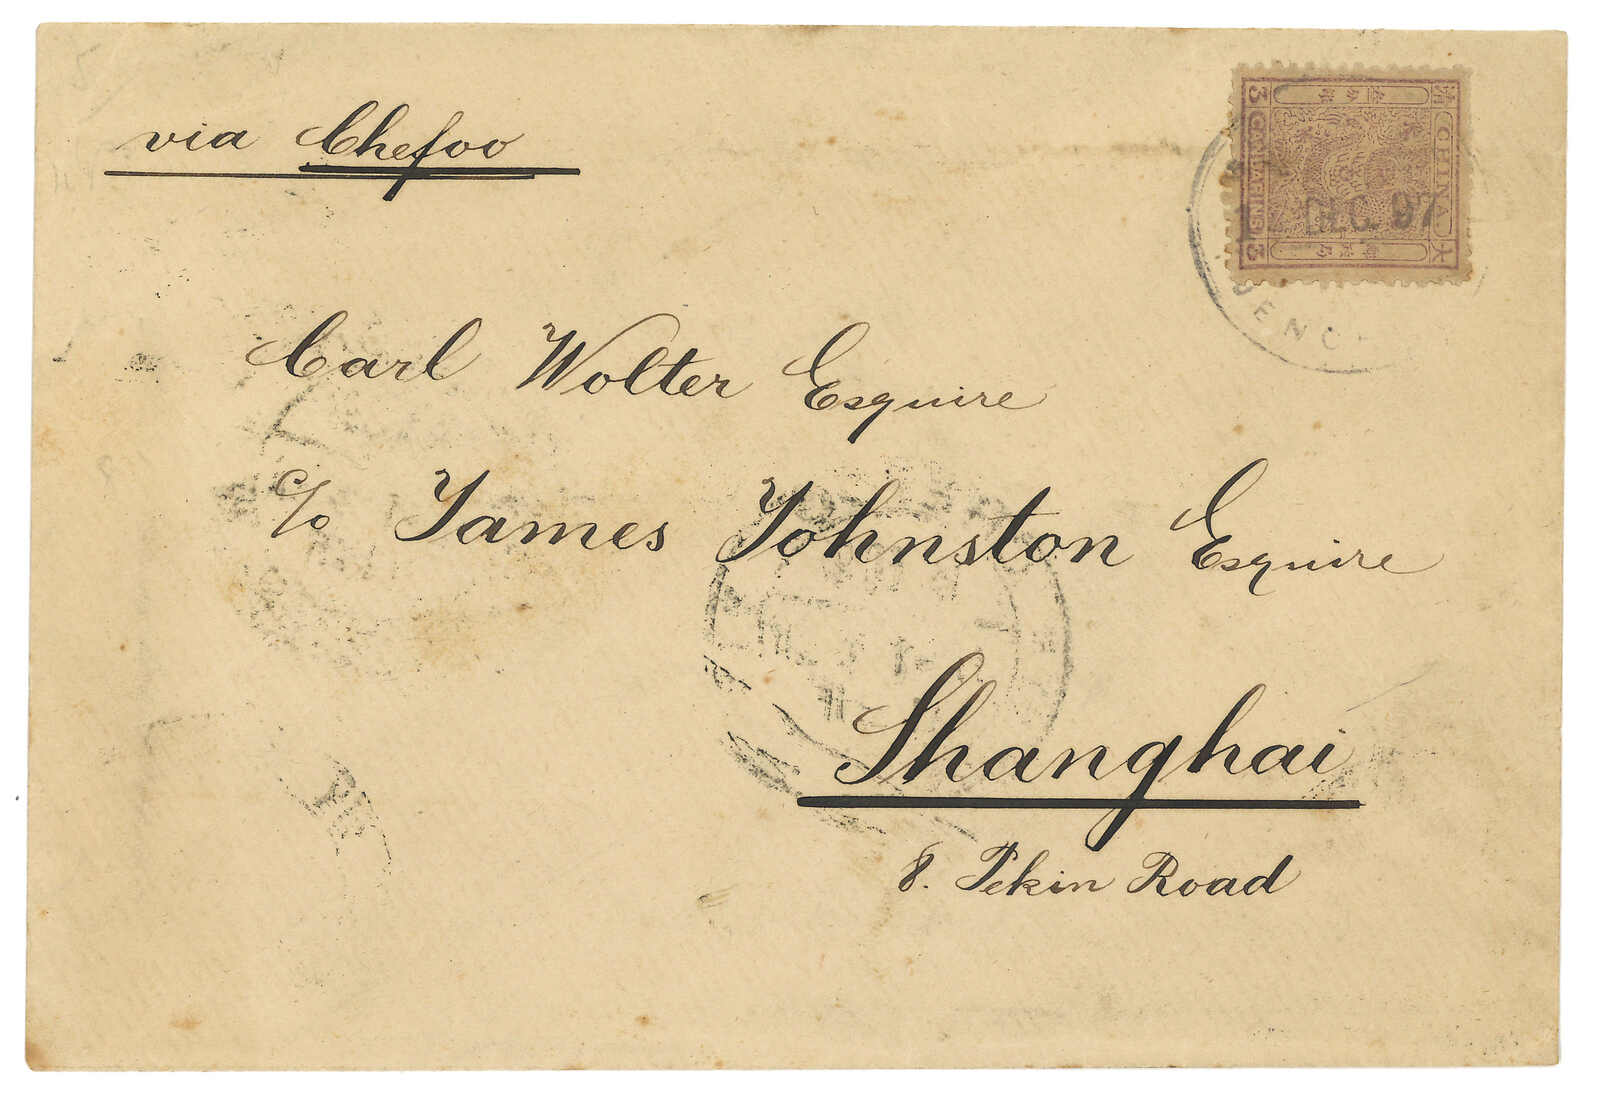 via Chefoo
3 CANDARINS 3
CHINA
DEC. 97
Carl Wolter Esquire
c/o James Johnston Esquire
Shanghai
8. Pekin Road